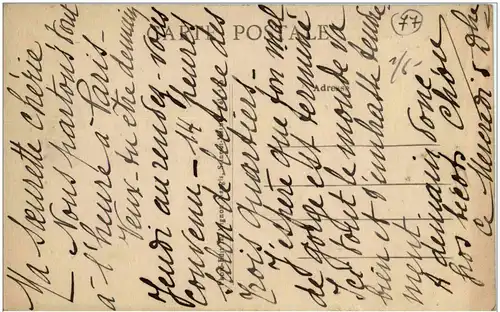 CARTE POSTALE
77
Adresse
Ma Sœurette chérie
— Nous partons tout
à l'heure à Paris —
Veux-tu être demain
Jeudi au rendez-vous
convenu — 14 heures
de la
trois quartiers.
J'espère que ton mal
de gorge est terminé
Ici tout le monde va
bien et t'embrasse tendre
ment
A demain donc
gros bécots
ce Mercredi 5